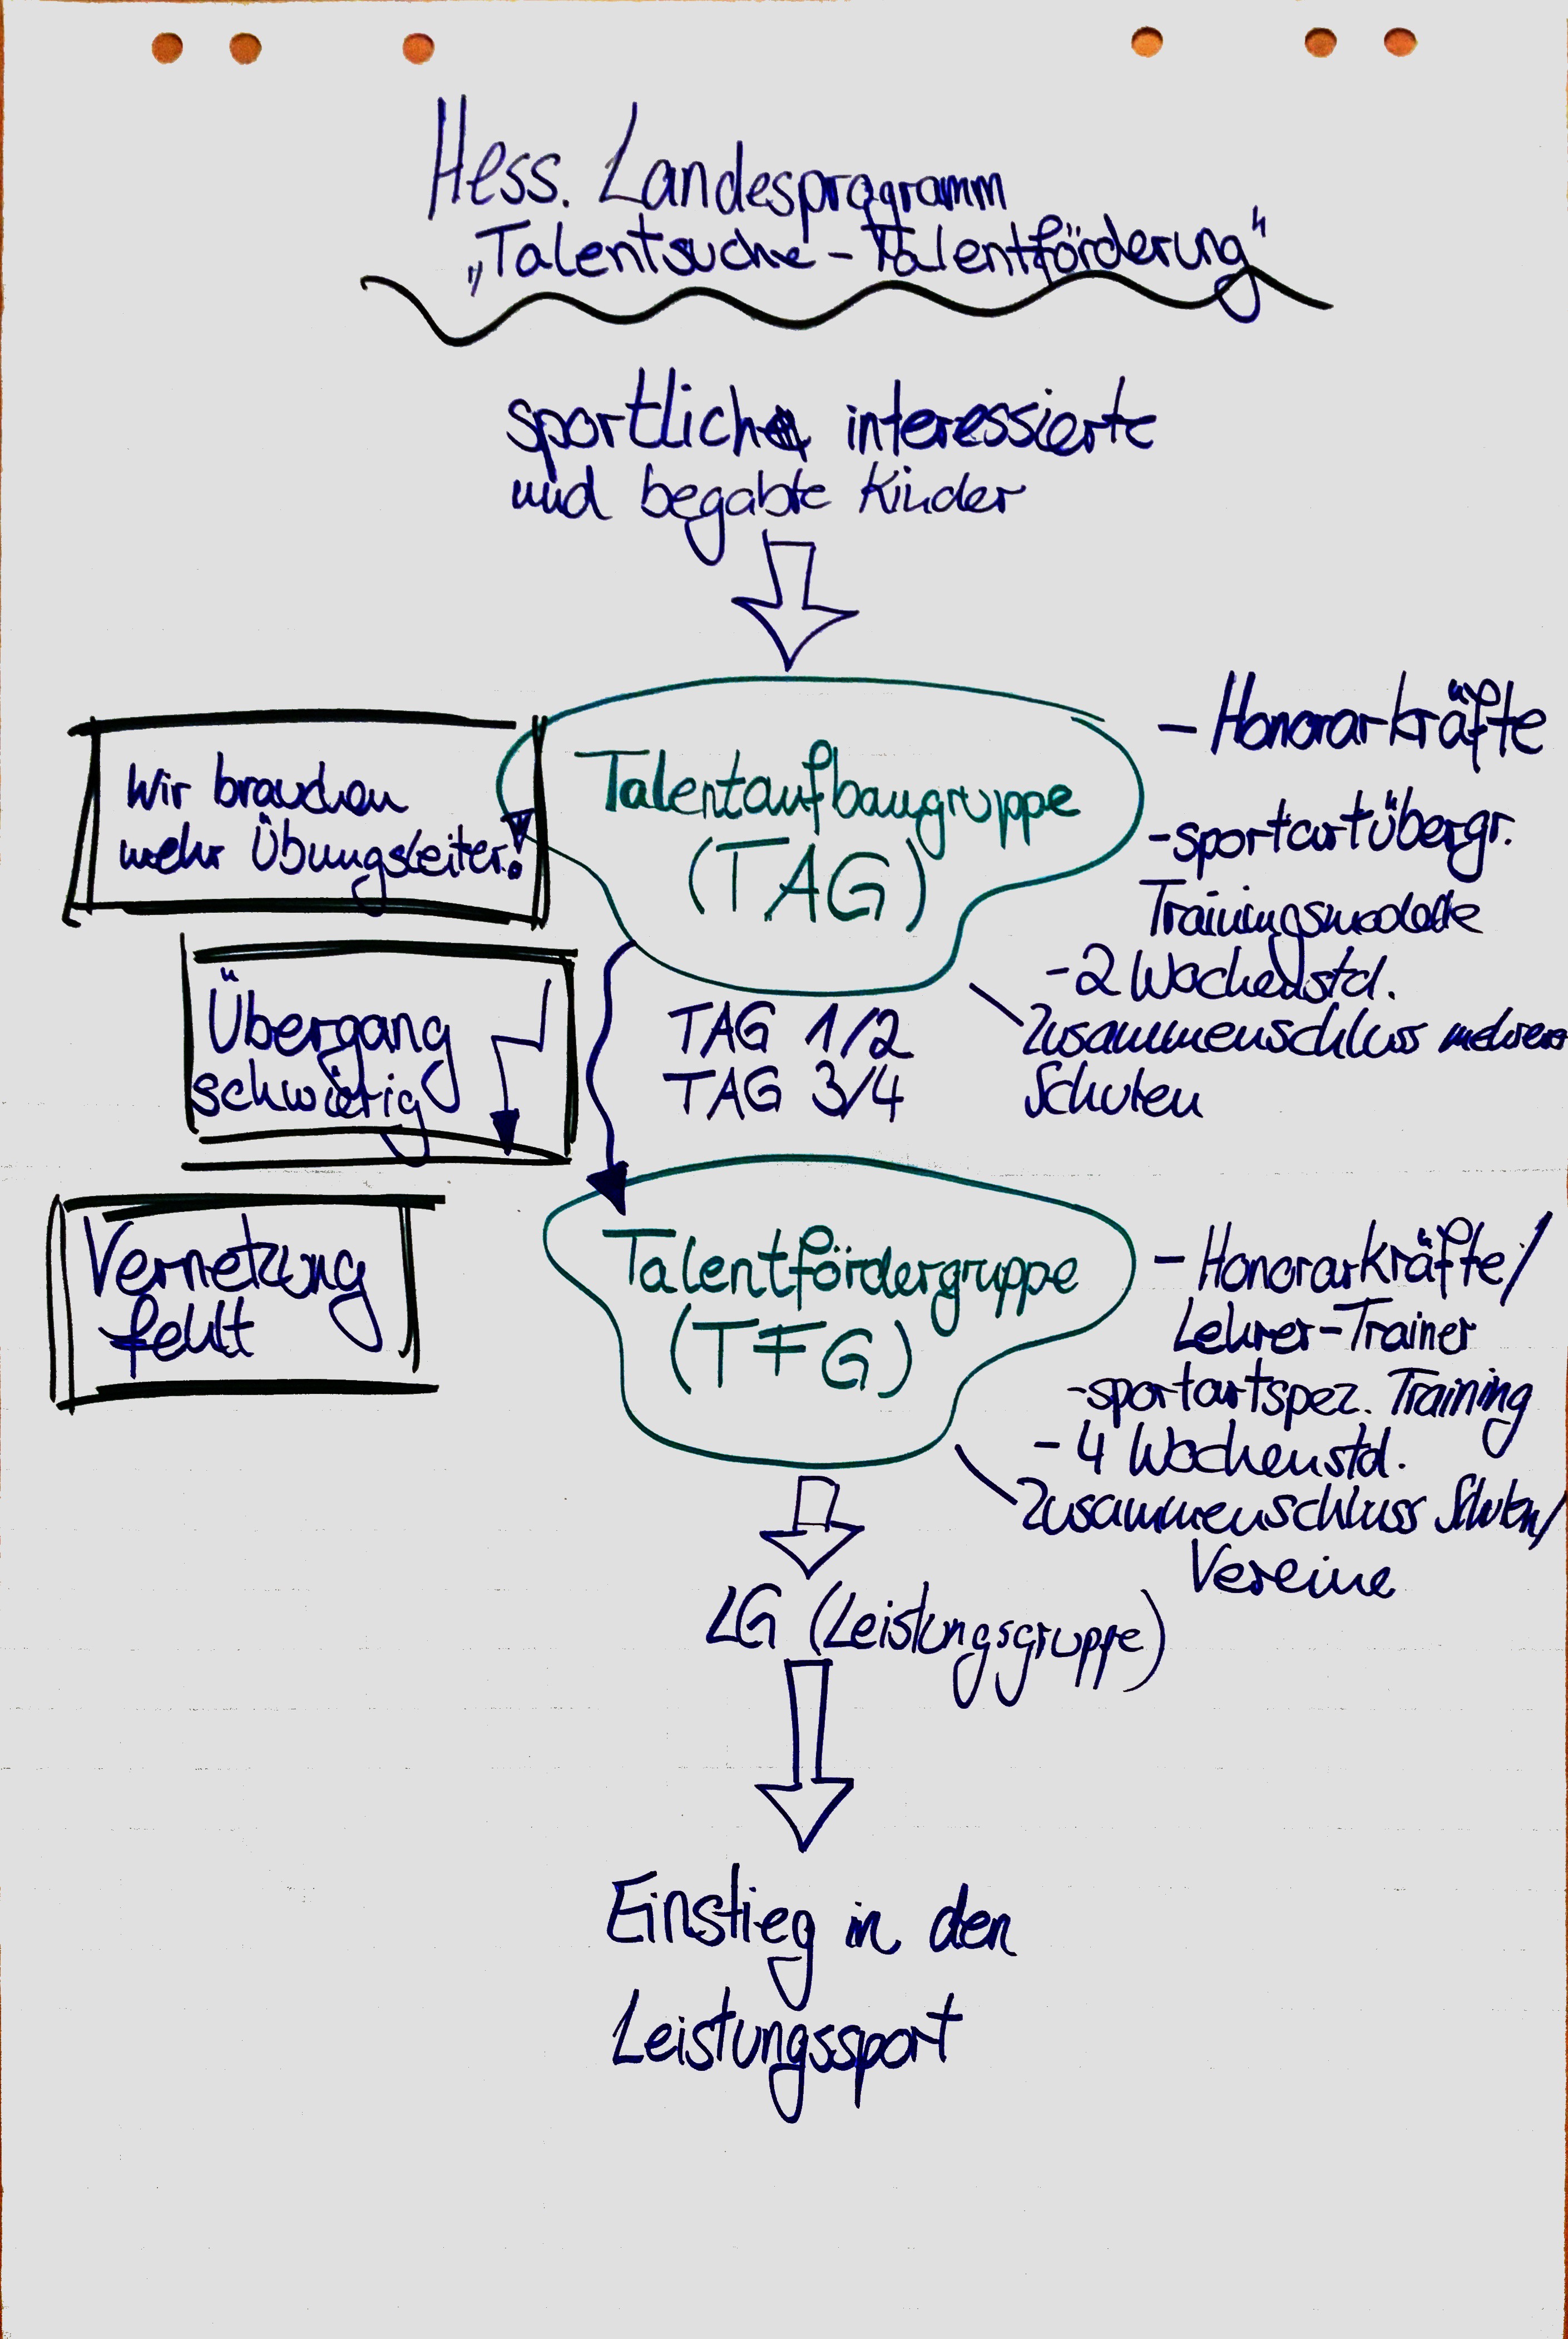 Hess. Landesprogramm
„Talentsuche - Talentförderung“
sportlich interessierte
und begabte Kinder
Wir brauchen
mehr Übungsleiter!
Talentaufbaugruppe
(TAG)
- Honorarkräfte
- sportartübergr.
Trainingsmodelle
- 2 Wochenstd.
Zusammenschluss mehrerer
Schulen
Übergang
schwierig
TAG 1/2
TAG 3/4
Vernetzung
fehlt
Talentfördergruppe
(TFG)
- Honorarkräfte/
Lehrer-Trainer
- sportartspez. Training
- 4 Wochenstd.
Zusammenschluss Schulen/
Vereine
LG (Leistungsgruppe)
Einstieg in den
Leistungssport